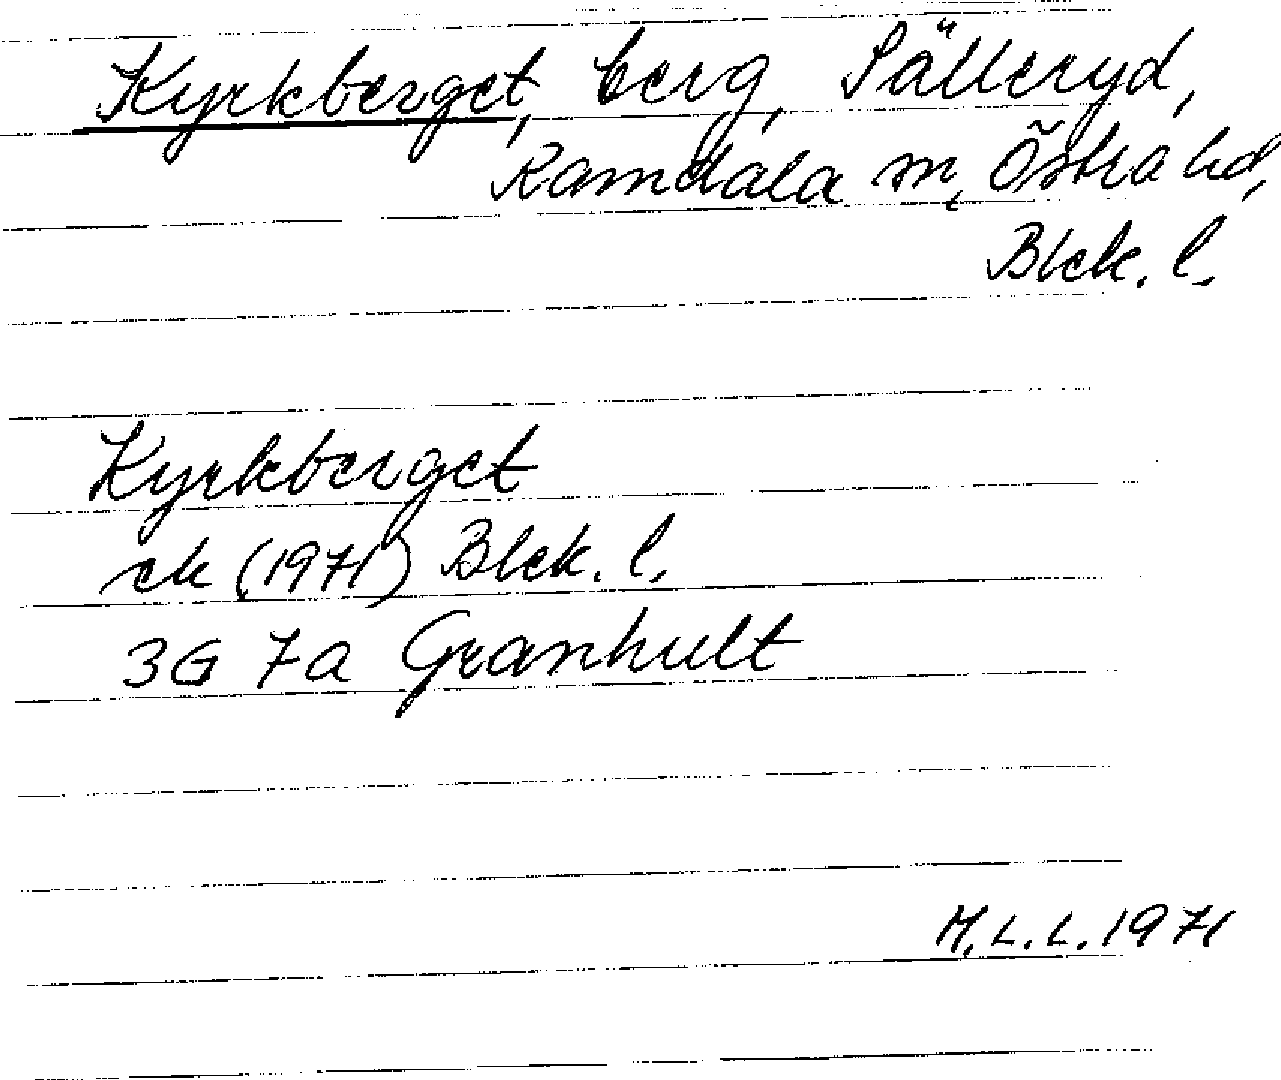 Kyrkberget, berg, Sälleryd,
Ramdala sn, Östra hd,
Blek. l.
Kyrkberget
ek (1971) Blek. l.
3G 7a Granhult
M.L.L. 1971